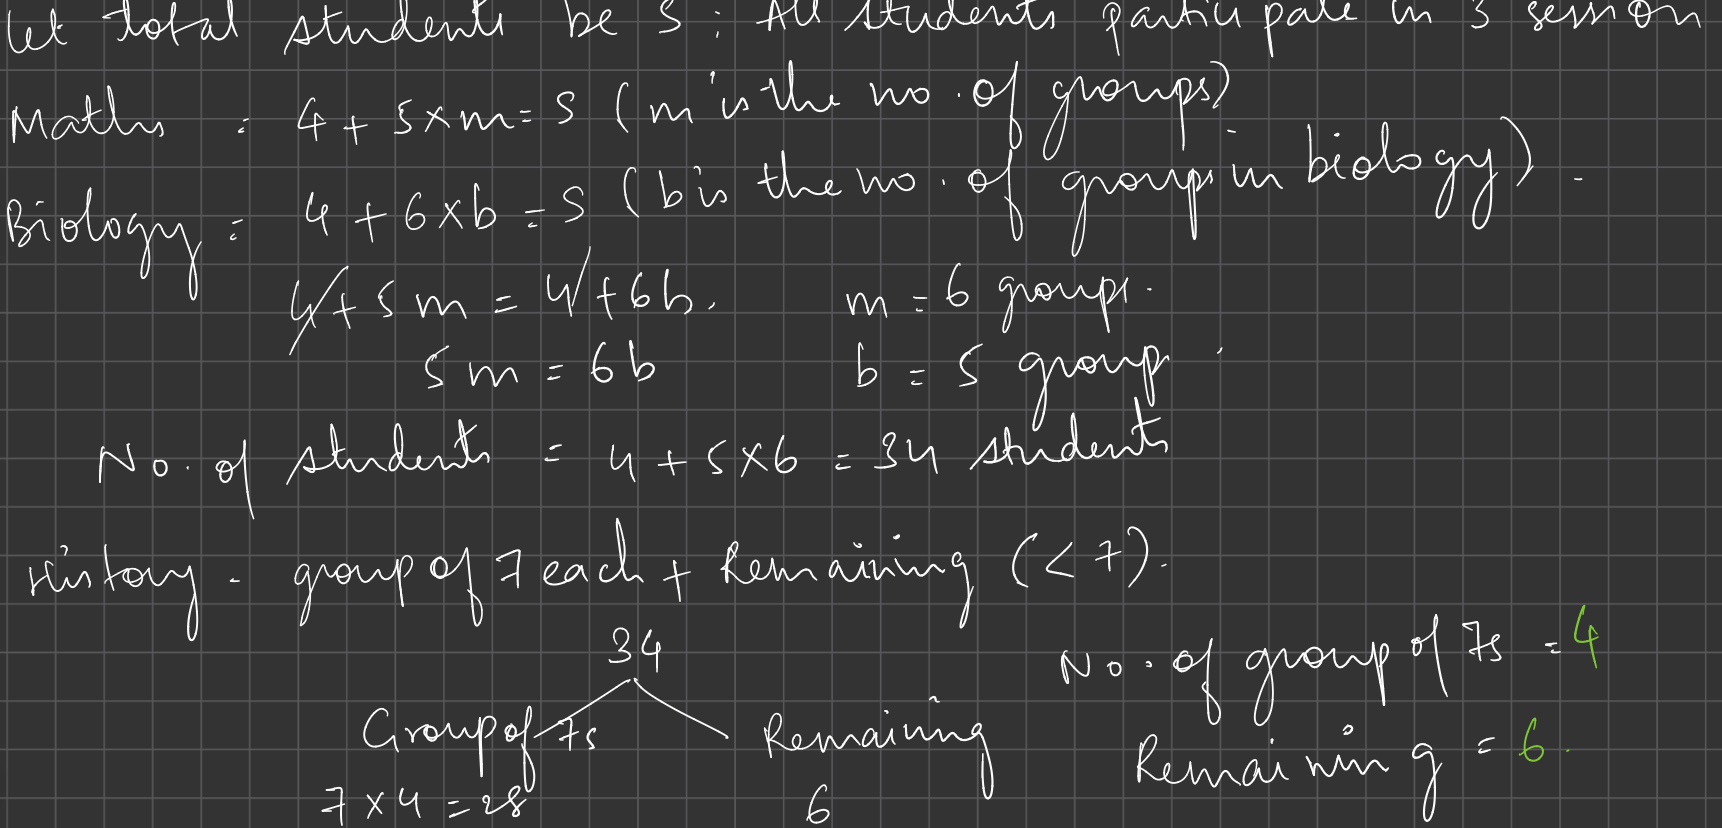 let total students be S; All students participate in 3 session
Maths : 4 + 5 x m = S (m is the no. of groups)
Biology : 4 + 6 x b = S (b is the no. of groups in biology).
4 + 5m = 4 + 6b. m = 6 groups.
5m = 6b b = 5 group.
No. of students = 4 + 5 x 6 = 34 students
History - group of 7 each + Remaining (< 7).
34
No. of group of 7s = 4
Group of 7s Remaining
Remaining = 6.
7 x 4 = 28 6